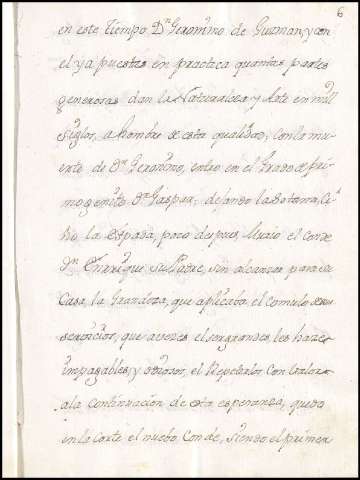 6
en este tiempo Dn Geronimo de Guzman, y con
el ya puestas en practica quantas partes
generosas dan la Naturaleza y Arte en mill
siglos, a hombre de esta qualidad, con la mu
erte de Dn Geronimo, entro en el Grado de pri
mogenito Dn Gaspar; dejando la sotana, Ci
ño la espada, poco despues Murio el conde
Dn Enrrique su Padre, sin alcanzar para su
Casa, la Grandeza, que aplicaba el comulo de sus
servicios, que a vezes el ser grandes, los haze
impagables, y odiosos, el Repetirlos con Valor
a la continuacion de esta esperanza, quedo
en la Corte el nuebo Conde, siendo el primer